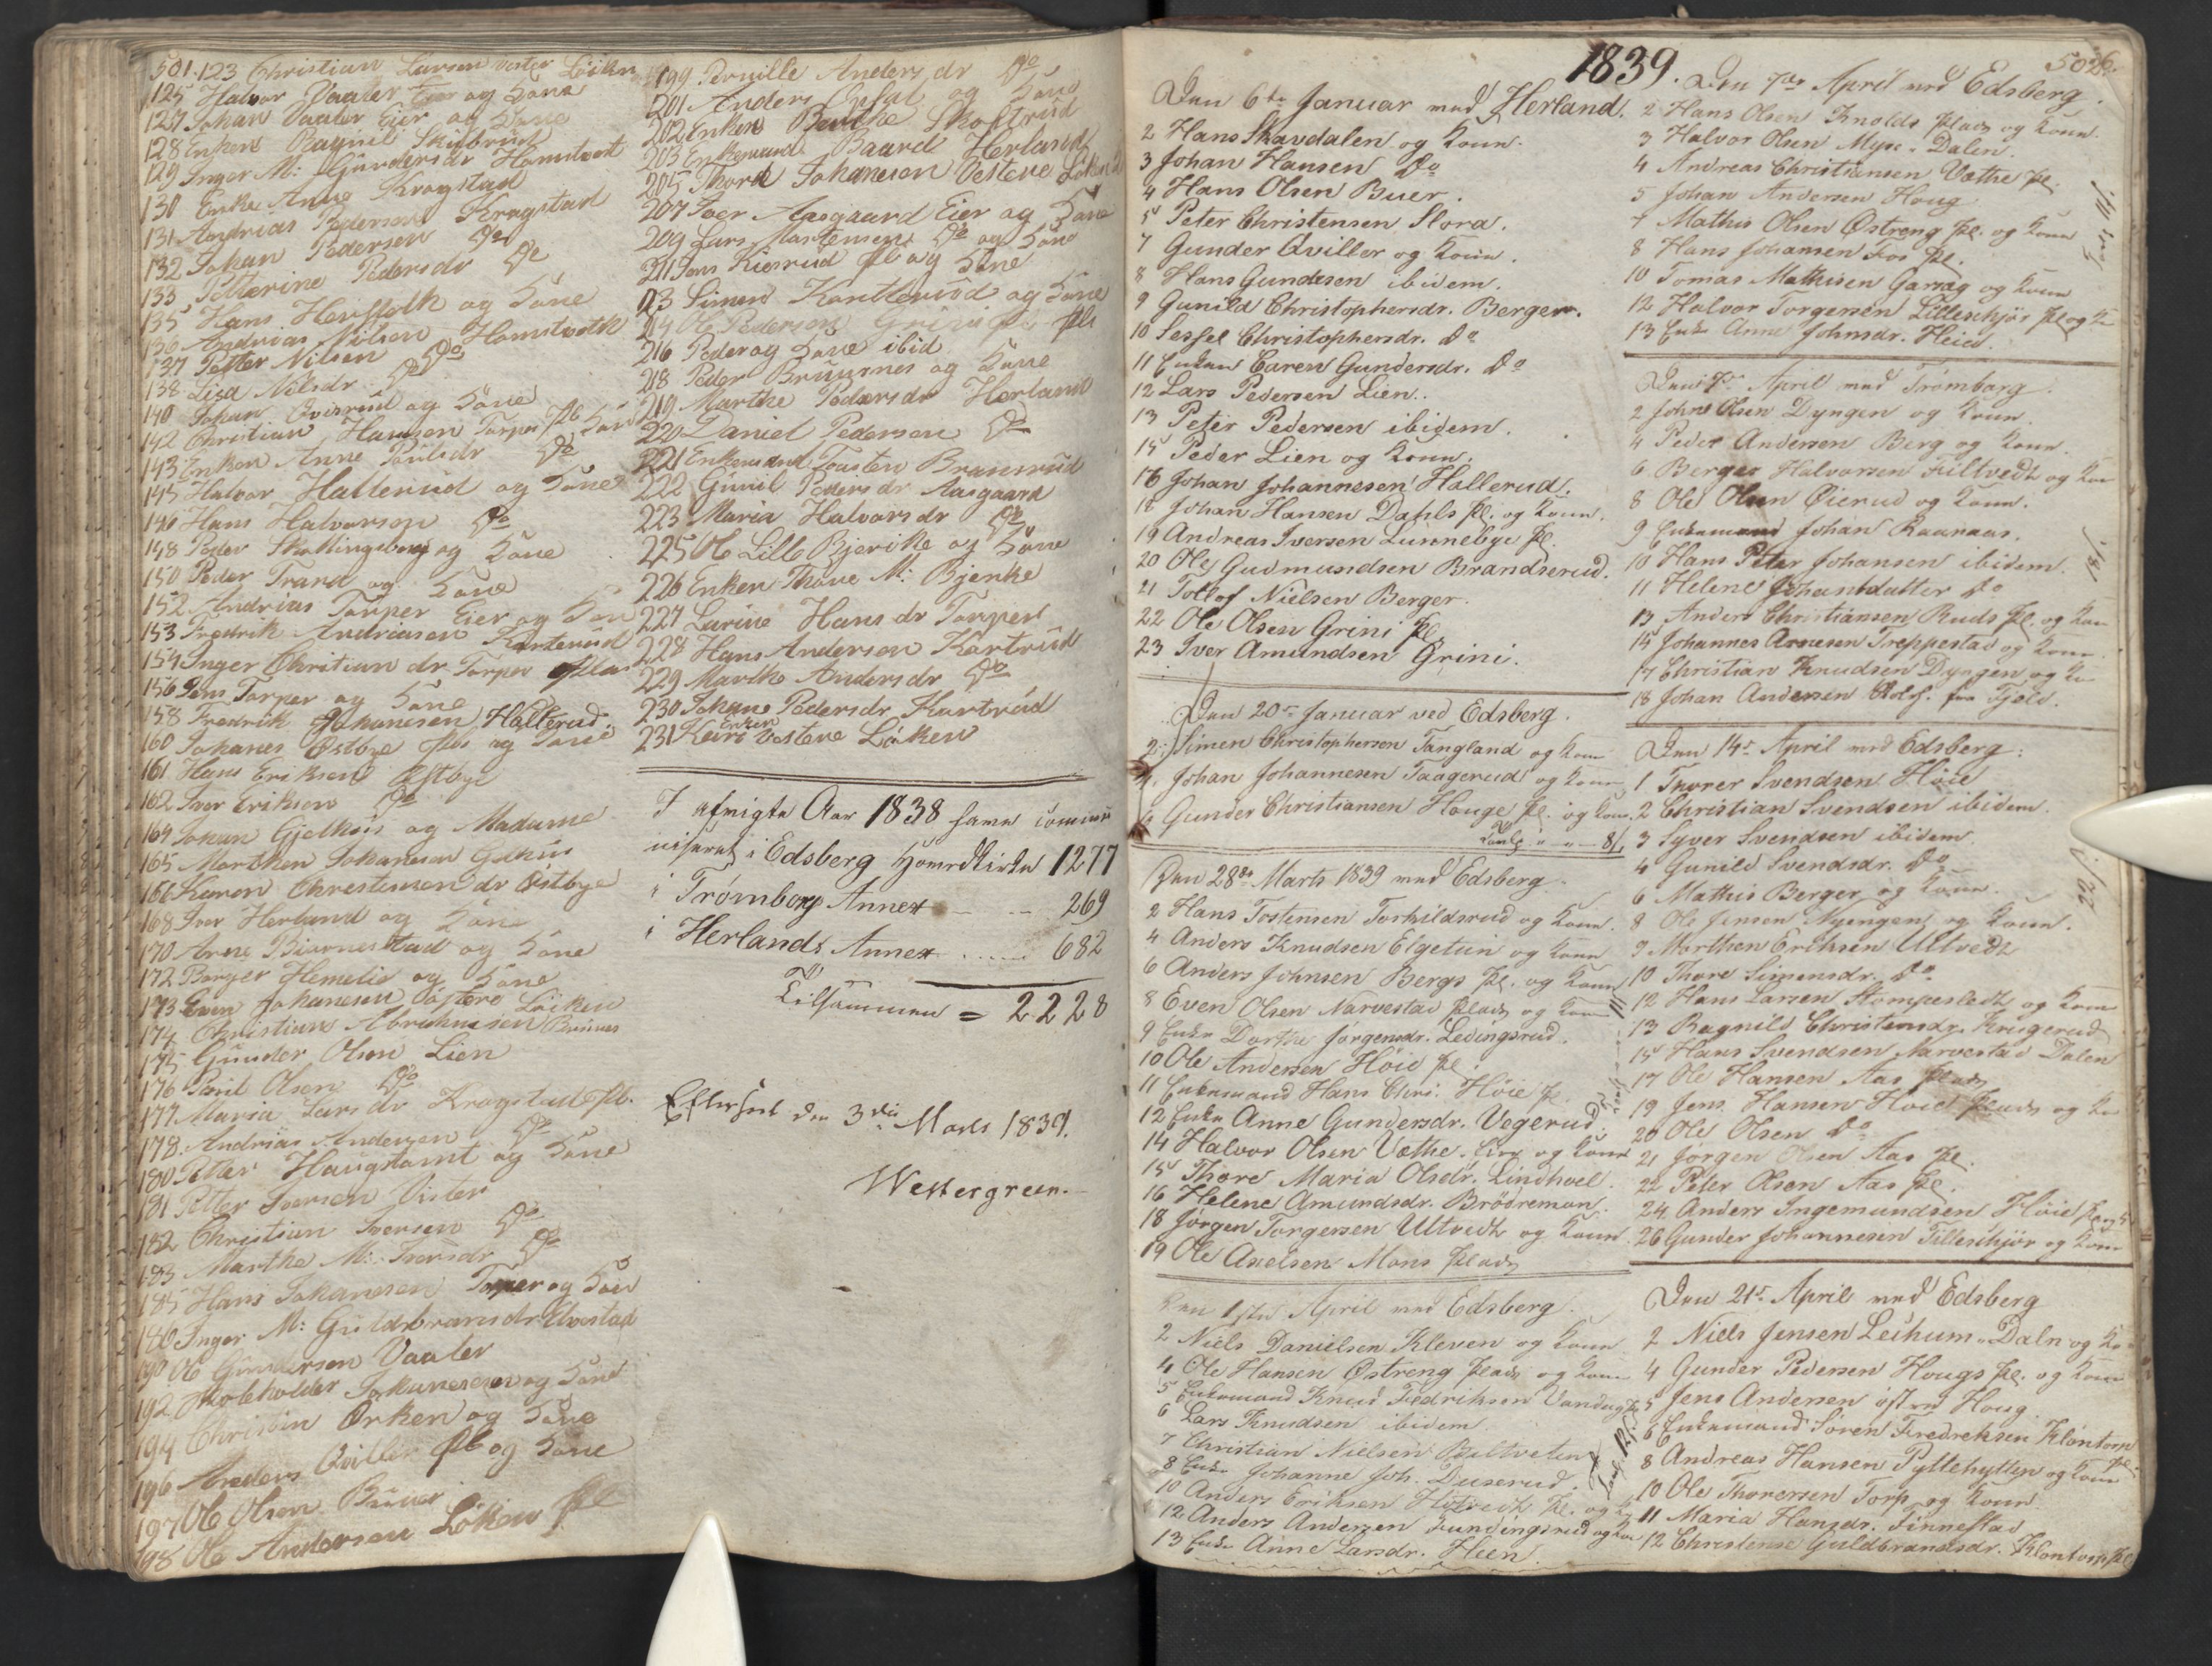 501. 123 Christian Larsen vester Löken
125 Halvor Vaaler Eier og Kone
127 Johan Vaaler Eier og Kone
128 Enken Ragnild Skibrud
129 Inger M: Gundersdr Hamitvet
130 Enke Anne Kragstad
131 Andrias Pedersen Kragstad
132 Johan Pedersen Do
133 Petterine Pedersdr Do
135 Hans Herffolk og Kone
136 Andrias Nilsen Homtvetk
137 Petter Nilsen Do
138 Lisa Nilsdr Do
140 Johan Qvisrud og Kone
142 Christian Hansen Torper Pl og Kone
143 Enken Anne Poulsdr Do
145 Halvor Hallerud og Kone
146 Hans Halvorsen Do
148 Peder Skallingsberg og Kone
150 Peder Trand og Kone
152 Andrias Torper Eier og Kone
153 Fredrik Andriasen Karterud
154 Inger Christiansdr Torper Plas
156 Jens Torper og Kone
158 Fredrik Johanesen Hallerud
160 Johanes Östbye Pls og Kone
161 Hans Eriksen Østbye
162 Iver Eriksen Do
164 Johan Gjelhus og Madame
165 Marthen Johanesen Gelhus
166 Karen Christensen dr Østbye
168 Iver Herland og Kone
170 Arne Biørnestad og Kone
172 Borger Hemelie og Kone
173 Even Johanesen Västere Löken
174 Christian Abrahmsen Bruines
175 Gunder Olsen Lien
176 Poul Olsen Do
177 Maria Larsdr Kragstad Pl.
178 Andrias Andersen Do
180 Petter Haugtomt og Kone
181 Petter Iversen Vister
182 Christian Iversen Do
183 Marthe M: Iversdr Do
185 Hans Johanesen Torper og Kone
186 Inger M: Guldbransdr Ulvestad
190 Ole Gundersen Vaaler
192 Skoleholder Johanesen og Kone
194 Christin Örken og Kone
196 Anders Qviller Pl og Kone
197 Ole Olsen Buer
198 Ole Andersen Löken Pl
199 Pernille Andersdr Do
201 Anders Opsal og Kone
202 Enken Berthe Skoltrud
203 Enkemand Baard Herland
205 Thore Johanesen Vestere Löken
207 Iver Aasgaard Eier og Kone
209 Lars Martensen Do og Kone
211 Jens Kiesrud Pl og Kone
213 Simen Kantterud og Kone
214 Ole Pedersen Grini Pl
216 Peder og Kone ibid
218 Peder Bruusnes og Kone
219 Marthe Pedersdr Herland
220 Daniel Pedersen Do
221 Enkemand Tosten Bransrud
222 Gunil Pedersdr Aasgaard
223 Maria Halvorsdr Do
225 Ole Lille Bjerike og Kone
226 Enken Thore M: Bjerke
227 Larine Hansdr Torper
228 Hans Andersen Kartrud
229 Marthe Andersdr Do
230 Johane Pedersdr Kartrud
231 Enken Kari Vestere Löken
I afvigte Aar 1838 have commu
niseret i Edsberg Hovedkirke 1277
i Trömborg Annex - - 269
i Herlands Annex ..... 682
Tilsammen = 2228
Efterseet den 3die Marts 1839.
Westergreen.
1839.
502.
Den 6te Januar med Herland.
2 Hans Skavdalen og Kone.
3 Johan Hansen Do
4 Hans Olsen Buer.
5 Peter Christensen Slora.
7 Gunder Qviller og Kone.
8 Hans Gundesen ibidem.
9 Gunild Christophersdr. Berger.
10 Sessel Christophersdr. Do
11 Enken Caren Gundersdr. Do
12 Lars Pedersen Lien.
13 Peter Pedersen ibidem.
15 Peder Lien og Kone.
16 Johan Johannesen Hallerud.
18 Johan Hansen Dahls Pl. og Kone.
19 Andreas Iversen Lunnebye Pl.
20 Ole Gudmundsen Brandserud.
21 Tollof Nielsen Berger.
22 Ole Olsen Grini Pl.
23 Iver Amundsen Grini.
Den 20de Januar ved Edsberg.
2 Simen Christophersen Tangland og Kone
4 Johan Johannesen Taagerud og Kone
6 Gunder Christiansen Houge Pl. og Kone.
Den 28de Marts 1839 med Edsberg.
2 Hans Tostensen Torkildsrud og Kone.
4 Anders Knudsen Elgetun og Kone
6 Anders Johnsen Bergs Pl. og Kone
8 Even Olsen Narvestad Plads og Kone
9 Enke Dorthe Jörgensdr. Ledingsrud.
10 Ole Andersen Höie Pl.
11 Enkemand Hans Chri. Höie Pl.
12 Enke Anne Gundersdr. Vegerud.
14 Halvor Olsen Væthe. Eier og Kone
15 Thore Maria Olsdr. Lindhoel.
16 Helene Amundsdr. Brödreman.
18 Jörgen Torgersen Ultvedt og Kone.
19 Ole Axelsen Mons Plads
Den 1ste April med Edsberg.
2 Niels Danielsen Kleven og Kone
4 Ole Hansen Østreng Plads og Kone
5 Enkemand Knud Fredriksen Vandug Pl.
6 Lars Knudsen ibidem.
7 Christian Nielsen Baltveten
8 Enke Johanne Joh. Duserud.
10 Anders Eriksen Hütvedt Pl. og K
12 Anders Andersen Fundingsrud og Kone
13 Enke Anne Larsdr. Heen
Den 7de April med Edsberg.
2 Hans Olsen Knolds Plads og Kone.
3 Halvor Olsen Myse-Dalen.
4 Andreas Christiansen Væthe Pl.
5 Johan Andersen Houg
7 Mathis Olsen Østreng Pl. og Kone
8 Hans Johansen Fos Pl.
10 Tomas Mathisen Garsæg og Kone
12 Halvor Torgersen Lilleschjör Pl og K
13 Enke Anne Johnsdr. Heie.
Den 7de April med Trømborg.
2 John Olsen Dyngen og Kone.
4 Peder Andersen Berg og Kone.
6 Berger Halvorsen Filtvedt og Kone
8 Ole Olsen Øierud og Kone.
9 Enkemand Johan Raanaas.
10 Hans Peter Johansen ibidem.
11 Helene Johansdatter Do
13 Anders Christiansen Ruds Pl. og Kone
15 Johannes Arnesen Treppestad og Kone
17 Christian Knudsen Dyngen og K
18 Johan Andersen fra Tjeld.
Den 14de April med Edsberg.
1 Thorer Svendsen Höie
2 Christian Svendsen ibidem.
3 Syver Svendsen ibidem
4 Gunild Svendsdr. Do
6 Mathis Berger og Kone.
8 Ole Jensen Myengen og Kone.
9 Morthen Eriksen Ultvedt
10 Thore Simensdr. Do
12 Hans Larsen Stompesledt og Kone
13 Ragnild Christensdr. Krugerud
15 Hans Svendsen Narvestad Dalen
17 Ole Hansen Aas Plads
19 Jens Hansen Höie Plads og K
20 Ole Olsen Do
21 Jörgen Olsen Aas Pl.
22 Peter Olsen Aas Pl.
24 Anders Ingemundsen Höie Pl og K
26 Gunder Johannesen Tilleschjör og Kone
Den 21de April med Edsberg
2 Niels Jensen Leihum-Daln og K
4 Gunder Pedersen Hougs Pl. og Kone
5 Jens Andersen östre Houg
6 Enkemand Sören Fredreksen Klontorp
8 Andreas Hansen Pyttehytten og Kone
10 Ole Thoresen Torp og Kone.
11 Maria Hansdr. Finnestad
12 Christense Guldbrandsdr. Klontorp Pl